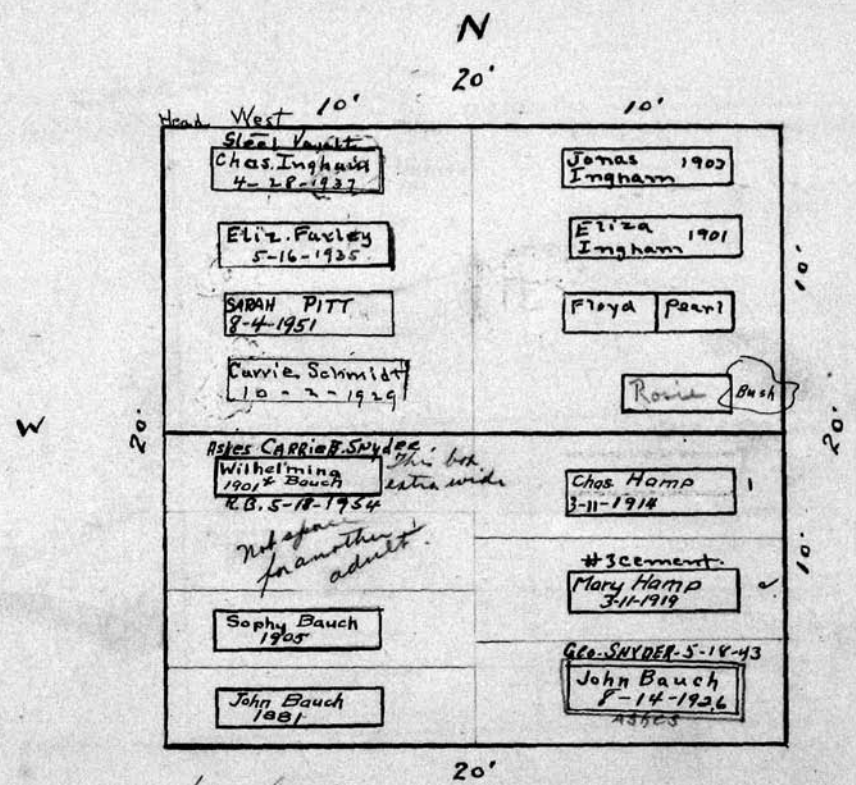 N
20'
10'
10'
Head West
Steel Vault
Chas. Ingham
4-28-1937
Eliz. Farley
5-16-1935
SARAH PITT
8-4-1951
Carrie Schmidt
10-2-1929
Jonas 1902
Ingham
Eliza 1901
Ingham
Floyd Pearl
Rosie
Bush
10'
W
20'
20'
Ashes CARRIE B. SNYDER
Wilhelmina
1901 * Bauch
R.B. 5-18-1954
This box
extra wide
Not space
for another
adult.
Sophy Bauch
1905
John Bauch
1881
Chas Hamp 1
3-11-1914
#3 cement.
Mary Hamp 2
3-11-1919
Geo. SNYDER-5-18-43
John Bauch
8-14-1926
ASHES
10'
20'